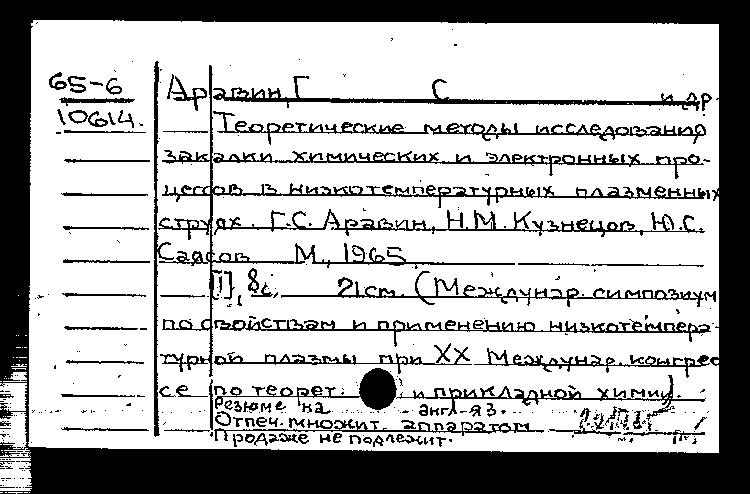 65-6
10614.
Аравин, Г С и др
Теоретические методы исследования
закалки химических и электронных про-
цессов в низкотемпературных плазменных
струях. Г.С. Аравин, Н.М. Кузнецов, Ю.С.
Саясов М., 1965
[I], 8с. 21см. (Междунар. симпозиум
по свойствам и применению низкотемпера-
турной плазмы при XX Междунар. конгрес
се по теорет. и прикладной химии).
Резюме на англ. яз.
Отпеч. множит. аппаратом
Продаже не подлежит.